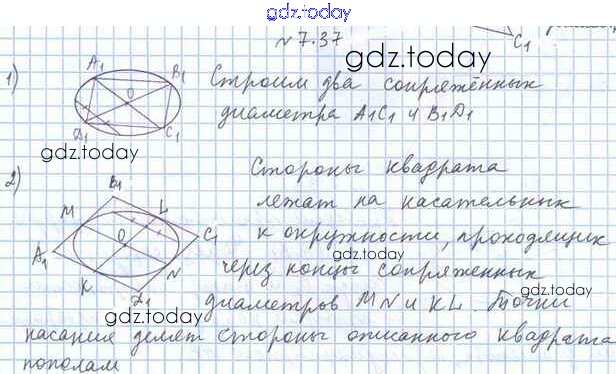 gdz.today
C₁
№ 7.37
gdz.today
1)
A₁ B₁
O
D₁ C₁
Строим два сопряжённых
диаметра A₁C₁ и B₁D₁
gdz.today
2)
B₁
M L
A₁ O C₁
K N
D₁
Стороны квадрата
лежат на касательных
к окружности, проходящих
через концы сопряженных
диаметров MN и KL. Точки
касания делят стороны описанного квадрата
пополам
gdz.today
gdz.today